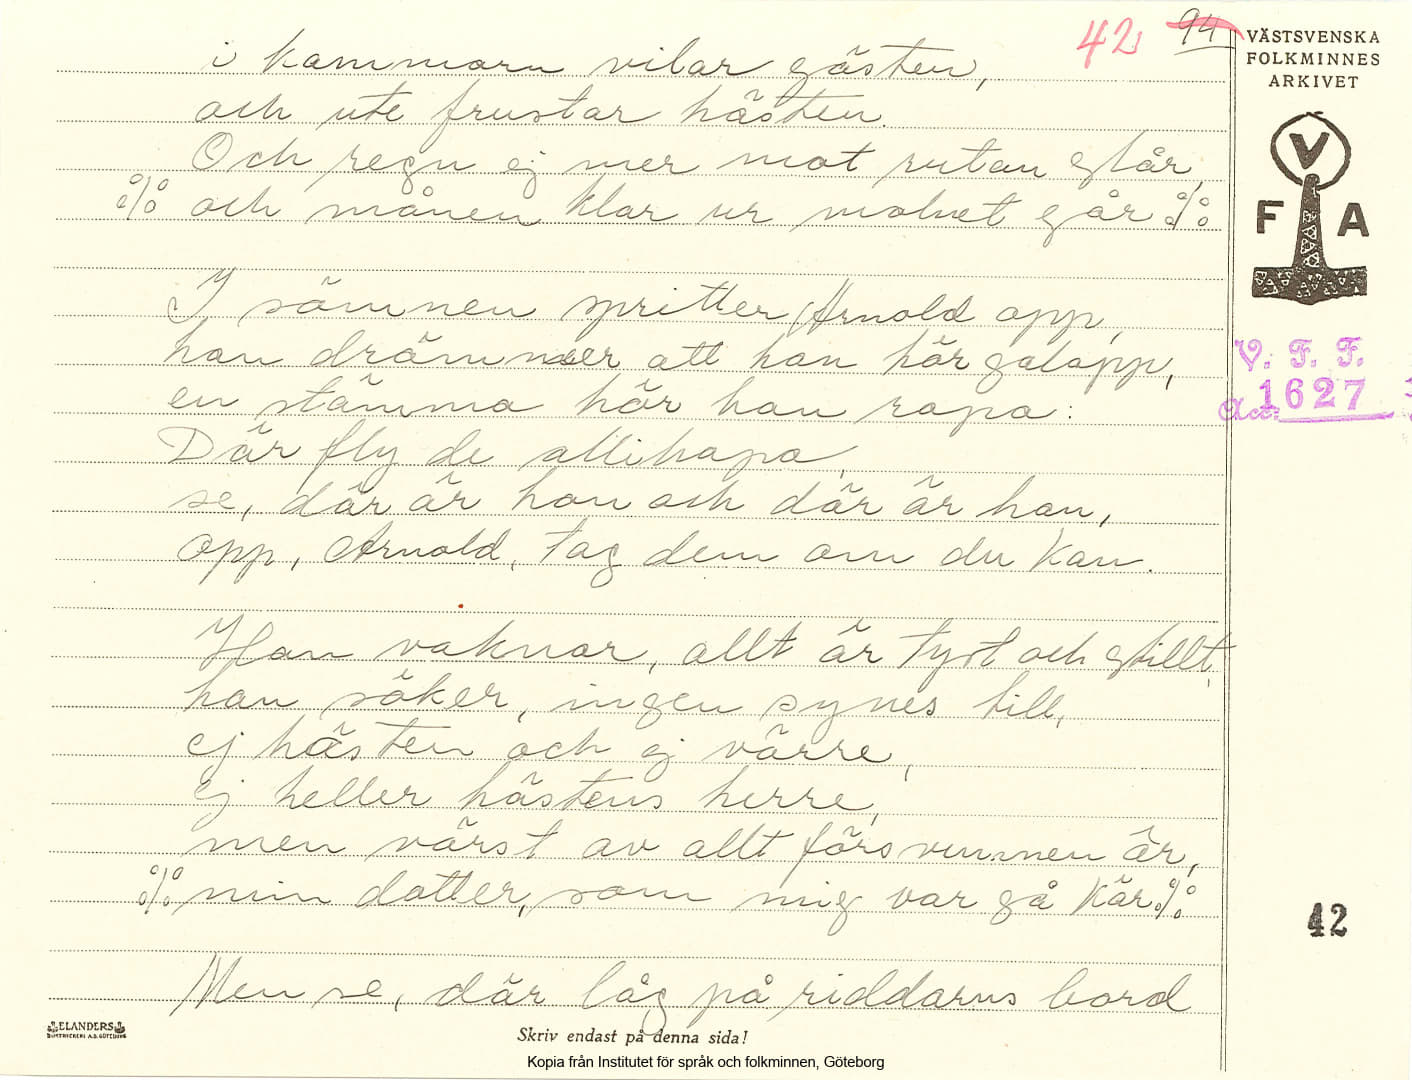 42 94
VÄSTSVENSKA
FOLKMINNES
ARKIVET
V
F A
V. F. F.
Acc. 1627
i kammarn vilar gästen,
och ute frustar hästen.
Och regn ej mer mot rutan slår,
% och månen klar ur molnet går %
I sömnen spritter Arnold opp,
han drömmer att han hör galopp,
en stämma hör han ropa:
Där fly de allihopa,
se, där är han och där är han,
opp, Arnold, tag dem om du kan.
Han vaknar, allt är tyst och stillt,
han söker, ingen synes till,
ej hästen och ej värre,
ej heller hästens herre,
men värst av allt försvunnen är,
% min dotter, som mig var så kär %
Men se, där låg på riddarns bord
42
ELANDERS
BOKTRYCKERI A.B. GÖTEBORG
Skriv endast på denna sida!
Kopia från Institutet för språk och folkminnen, Göteborg